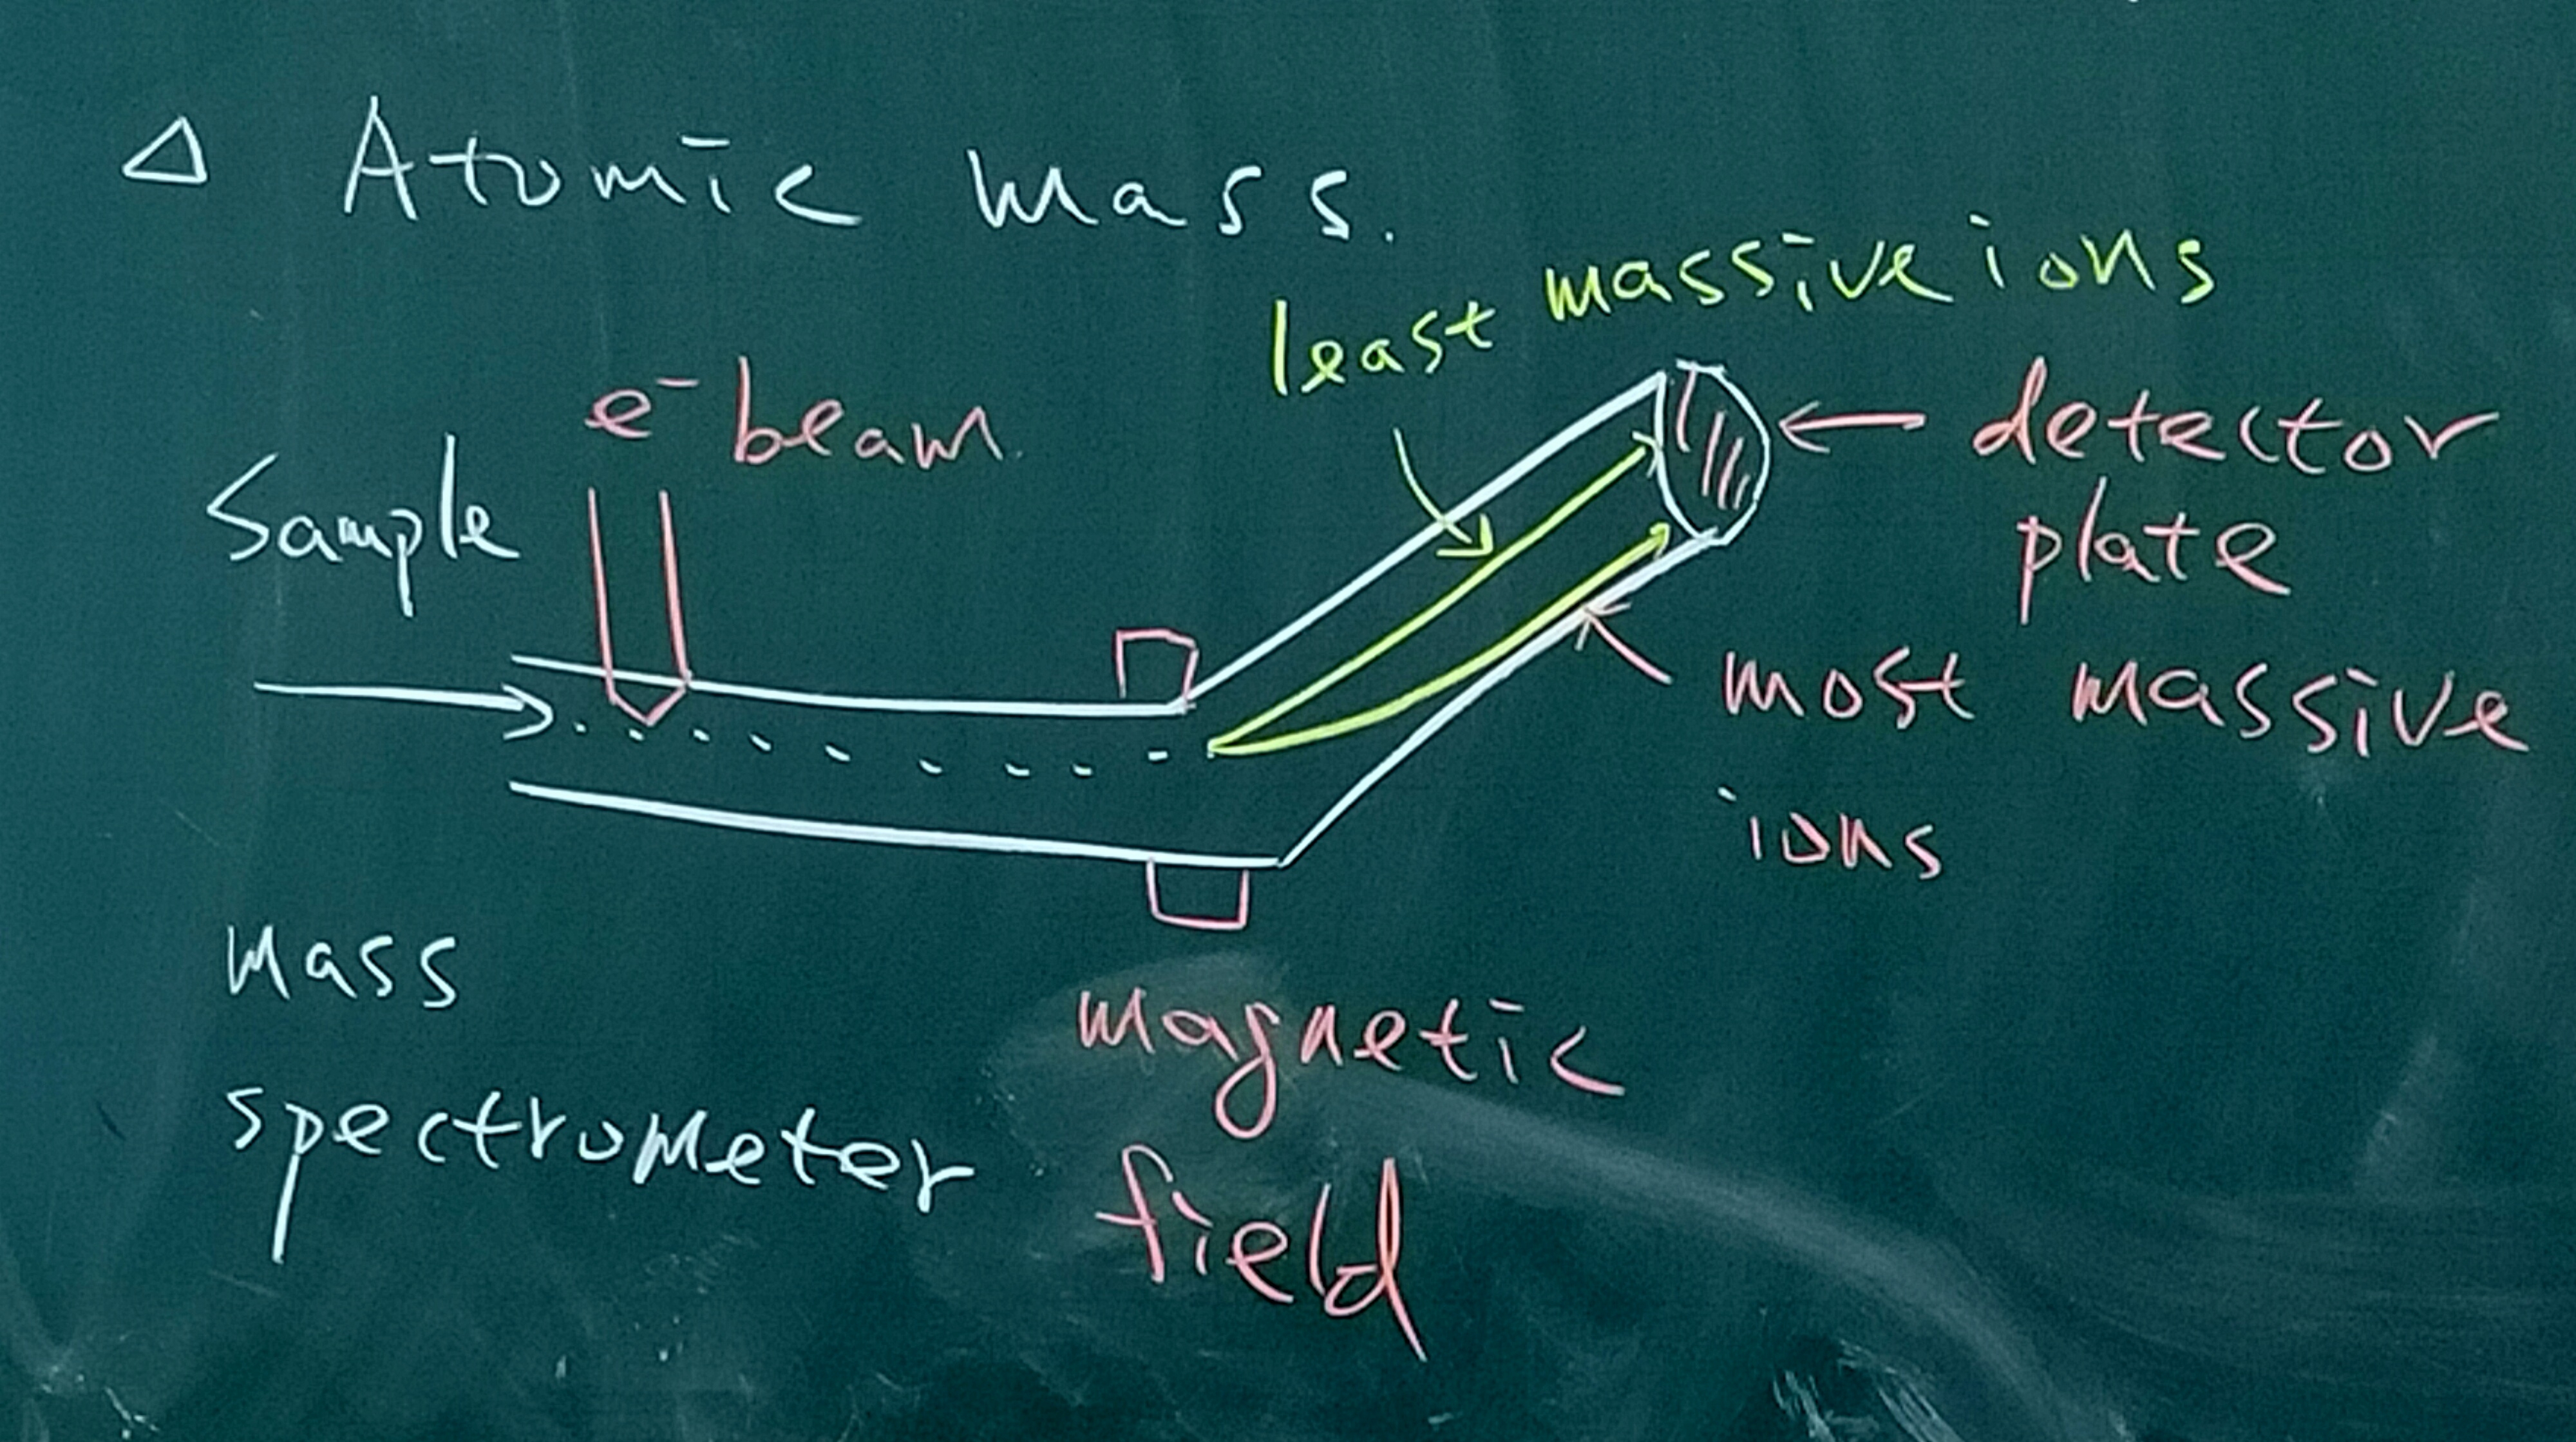 △ Atomic mass.
least massive ions
e⁻ beam.
Sample
detector
plate
most massive
ions
mass
spectrometer
magnetic
field